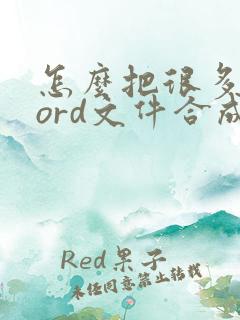 怎麼把很多
ord文件合成
Red果子
未经同意禁止转载